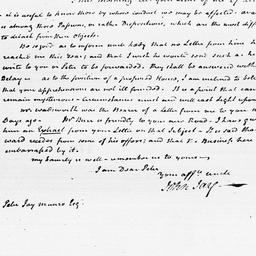 it is useful to know those by whose conduct we may be affected - and
is among those Passions, or rather Dispositions, which are the most diff
to detach from their objects.
Be so good as to inform such body that no Letter from him h
reached me this year and that I wish he would send such as he
write to you or Peter to be forwarded. They shall be answered witho
Delay - as to the fortune of a proposed House, I am inclined to beli
that your apprehensions are not ill founded. It is a point that can
remain mysterious - circumstances must and will cast light upon
Mr. Wadsworth was the Bearer of a Letter from me to you a
Days ago - Mr Burr is friendly to your new Road - I have giv
him an Extract from your Letter on that Subject - It is said that
ward recedes from some of his offers; and that Fr. Business here
embarrassed by it.
my family is well - remember us to yours -
I am Dear Peter
Your affte. uncle
John Jay
Peter Jay Munro Esqr.